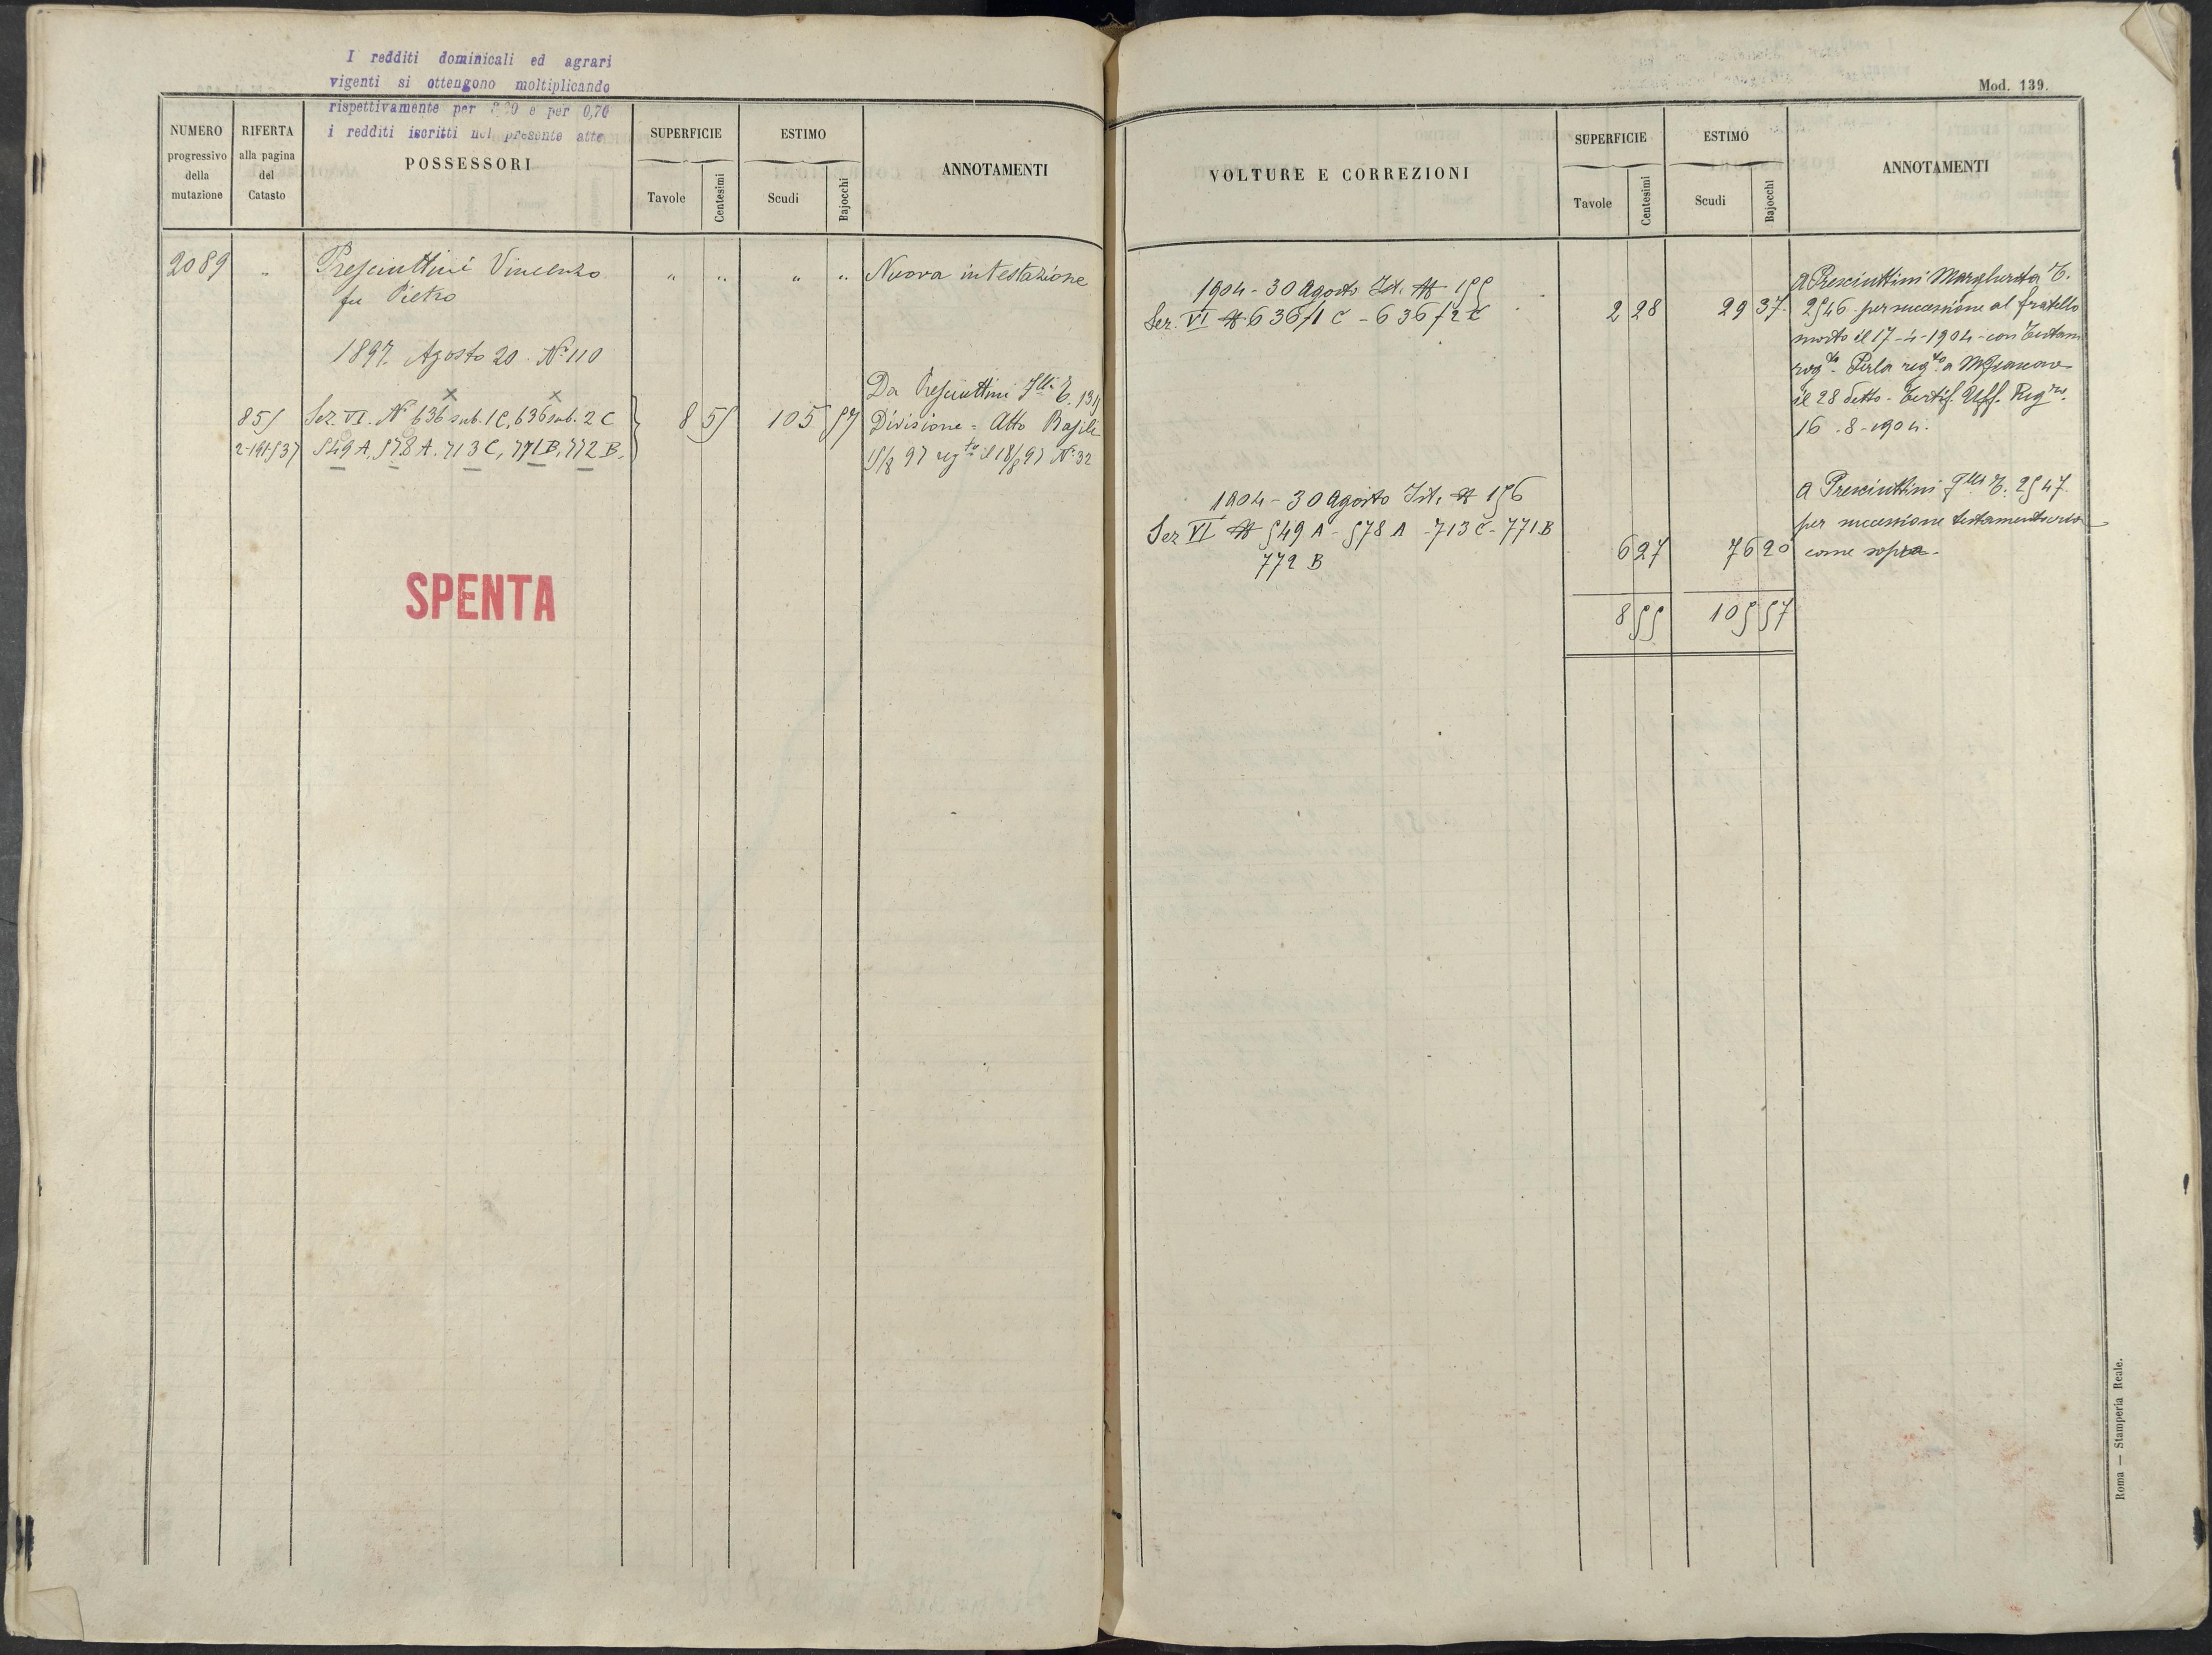 I redditi dominicali ed agrari
vigenti si ottengono moltiplicando
rispettivamente per e per 0,70
i redditi iscritti nel presente atto
NUMERO progressivo della mutazione
RIFERTA alla pagina del Catasto
POSSESSORI
SUPERFICIE
Tavole Centesimi
ESTIMO
Scudi Bajocchi
ANNOTAMENTI
2089 " Presciuttini Vincenzo " " " " Nuova intestazione
fu Pietro
1897 Agosto 20. N° 110
Da Presciuttini F.lli E.
855 Sez. VI. N° 636 sub. 1 C, 636 sub. 2 C 8 55 105 57 Divisione = Atto Basili
2-191-537 549 A, 578 A. 713 C, 771 B, 772 B. 15/8 97 reg.to il 18/8 97 N° 32
SPENTA
Mod. 139.
VOLTURE E CORREZIONI
SUPERFICIE
Tavole Centesimi
ESTIMO
Scudi Bajocchi
ANNOTAMENTI
1904 - 30 Agosto Ist. N 155
Sez. VI N 636/1 C - 636/2 C 2 28 29 37
A Presciuttini Margherita E.
2546 per successione al fratello
morto il 17-4-1904 - con Testam
rog.to Perla reg.to a
il 28 detto - Certif. Uff. Reg.ro
16-8-1904.
1904 - 30 Agosto Ist. N 156
Sez VI N 549 A - 578 A - 713 C - 771 B
772 B 6 27 76 20
A Presciuttini F.lli E. 2547
per successione testamentaria
come sopra.
8 55 105 57
Roma — Stamperia Reale.